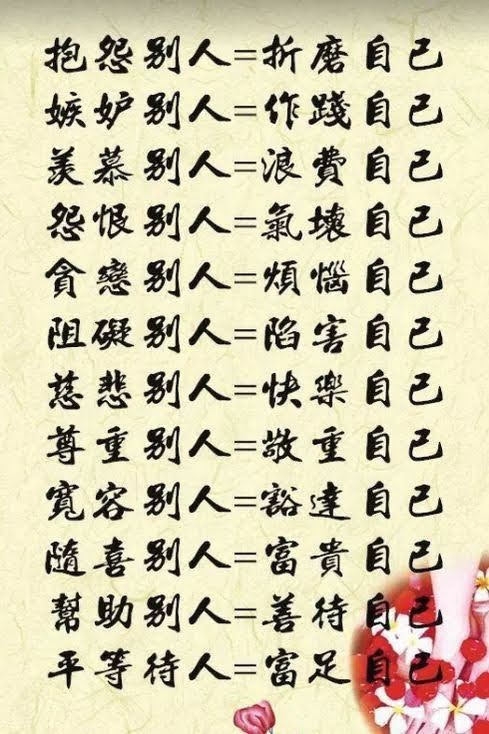 抱怨别人=折磨自己
嫉妒别人=作踐自己
羡慕别人=浪費自己
怨恨别人=氣壞自己
貪戀别人=煩惱自己
阻礙别人=陷害自己
慈悲别人=快樂自己
尊重别人=敬重自己
寬容别人=豁達自己
隨喜别人=富貴自己
幫助别人=善待自己
平等待人=富足自己